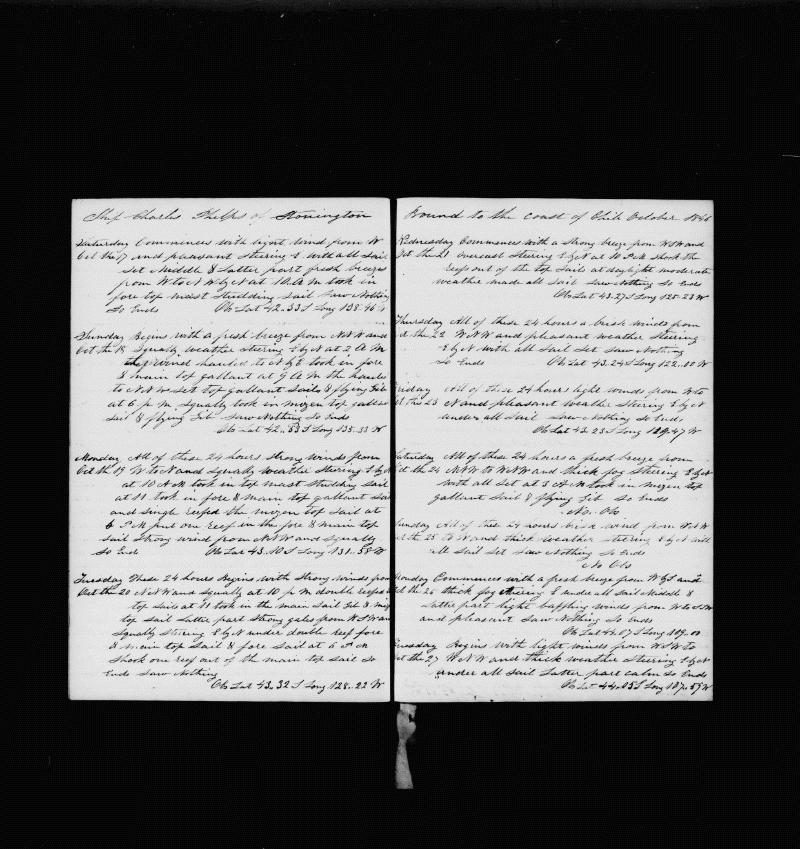 Ship Charles Phelps of Stonington
Saturday Commences with light wind from W
Oct the 17 and pleasant Steering with all Sail
Set Middle & Latter part fresh breezes
from W to N W by N at 10 A M took in
fore top mast Studding sail Saw Nothing
So Ends Ob Lat 42..33 S Long 138..16
Sunday Begins with a fresh breeze from N N W and
Oct the 18 Squally weather Steering E by N at 2 A M
the wind hauled to N by E took in fore
& main top gallant at 9 A M the hauled
to N N W Set top gallant Sails & flying Jib
at 6 p m Squally took in mizen top gallant
Sail & flying Jib Saw Nothing So Ends
Ob Lat 42..53 S Long 135..33 W
Monday All of these 24 hours Strong winds from
Oct the 19 W to N and Squally weather Stering E by N
at 10 A M took in top mast Studding Sail
at 11 took in fore & main top gallant Sail
and Single reefed the mizen top Sail at
6 P M put one reef in the fore & main top
sail Strong wind from N N W and Squally
So Ends Ob Lat 43..10 S Long 131..58 W
Tuesday These 24 hours Begins with Strong winds from
Oct the 20 N N W and Squally at 10 p m double reefed
top sails at 11 took in the main Sail Jib &
top sail Latter part Strong gales from W S W and
Squally Stering E by N under double reef fore
& main top Sail & fore sail at 6 P M
Shook one reef out of the main top sail So
Ends Saw Nothing
Ob Lat 43..32 S Long 128..22 W
Bound to the coast of Chili October 1846
Wednesday Commences with a Strong breeze from W S W and
Oct the 21 overcast Steering E by N at 10 P M Shook the
reefs out of the top Sails at daylight moderate
weather made all Sail Saw Nothing So Ends
Ob Lat 43..27 S Long 125..23 W
Thursday All of these 24 hours a brisk winds from
Oct the 22 W N W and pleasant weather Steering
E by N with all Sail Set Saw Nothing
So Ends Ob Lat 43..24 S Long 122..00 W
Friday All of these 24 hours light winds from W to
Oct the 23 N and pleasant weather Steering E by N
under all Sail Saw Nothing So Ends
Ob Lat 43..23 S Long 119..47 W
Saturday All of these 24 hours a fresh breeze from
Oct the 24 N N W to W N W and thick fog Steering E by N
with all Set at 3 A M took in mizen top
gallant Sail & flying Jib So Ends
No Obs
Sunday All of these 24 hours brisk wind from W N W
Oct the 25 to N and thick weather Steering E by N with
all Sail Set Saw Nothing So Ends
No Obs
Monday Commences with a fresh breeze from W by S and
Oct the 26 thick fog Stering E under all Sail Middle &
Latter part light baffling winds from W to S W
and pleasant Saw Nothing So Ends
Ob Lat 44..07 S Long 109..00
Tuesday Begins with light winds from W S W to
Oct the 27 W N W and thick weather Steering E by N
under all Sail Latter part calm So Ends
Ob Lat 44..05 S Long 107..59 W